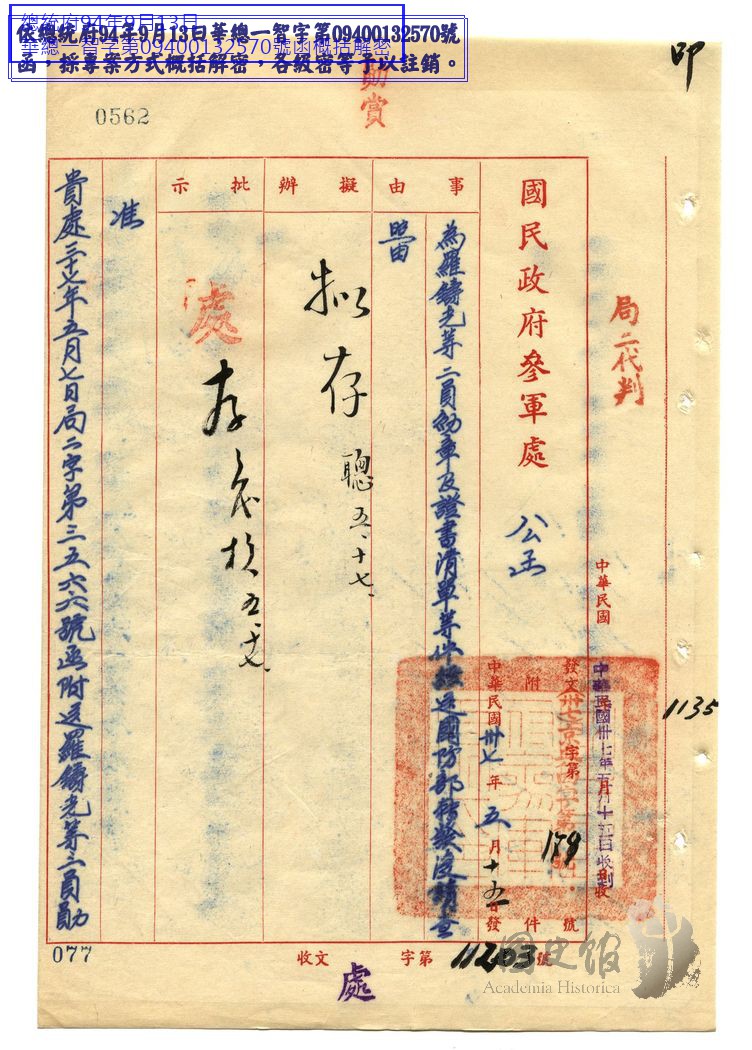 總統府94年9月13日
華總一智字第09400132570號函概括解密
依總統府94年9月13日華總一智字第09400132570號
函，採專案方式概括解密，各級密等予以註銷。
印
0562
勛賞
局二代判
1135
國民政府參軍處
公函
中華民國
中華民國卅七年五月十
日收到
收
發文
字第
號
附
件
179
中華民國卅七年五月十五日發
事由
為羅鑄光等二員勛章及證書清單等件經送國防部轉發復請查
照由
擬辦
拟存
聰五、十七、
批示
處
存
五、十七
准
貴處三十七年五月七日局二字第三五六六號函附送羅鑄光等二員勛
077
收文
字第11203號
處
國史館
Academia Historica